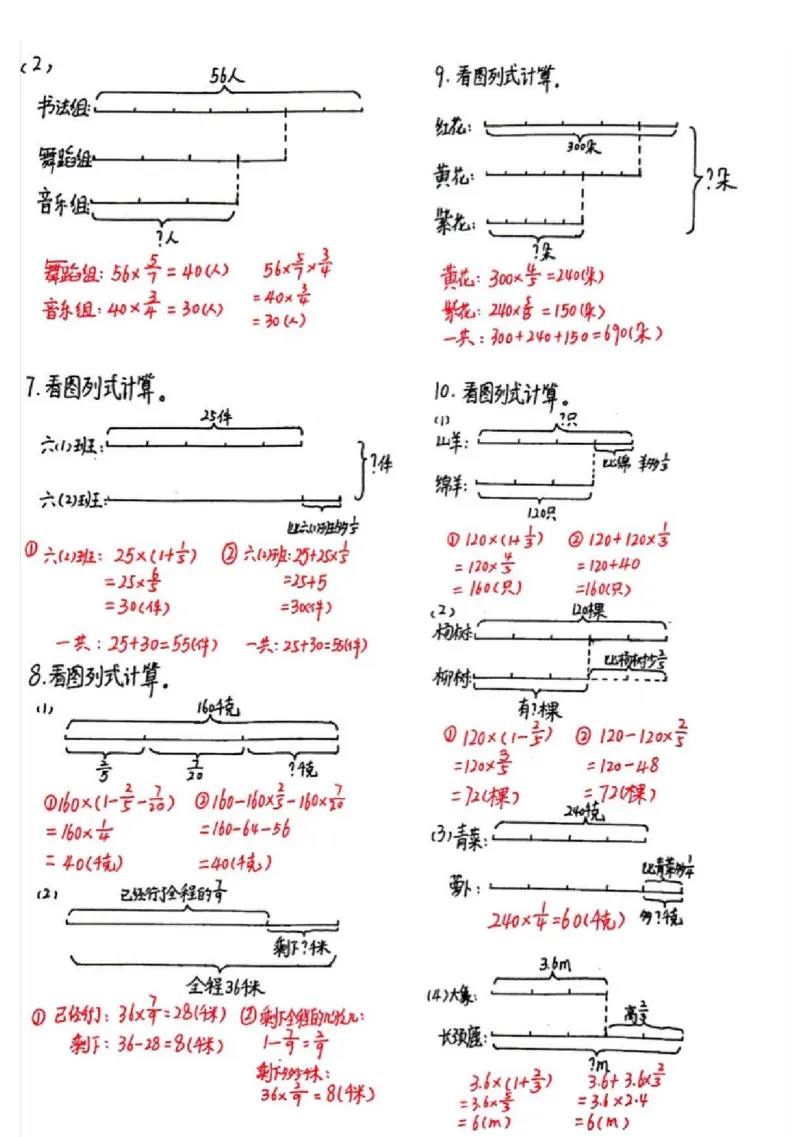 (2)
56人
书法组:
舞蹈组:
音乐组:
?人
舞蹈组: 56×5/7=40(人)
音乐组: 40×3/4=30(人)
56×5/7×3/4
=40×3/4
=30(人)
7.看图列式计算。
25件
六(1)班:
?件
六(2)班:
比六(1)班多1/5
① 六(2)班: 25×(1+1/5)
=25×6/5
=30(件)
一共: 25+30=55(件)
② 六(2)班: 25+25×1/5
=25+5
=30(件)
一共: 25+30=55(件)
8.看图列式计算。
(1)
160千克
2/5
7/20
?千克
①160×(1-2/5-7/20)
=160×1/4
=40(千克)
②160-160×2/5-160×7/20
=160-64-56
=40(千克)
(2)
已经行了全程的7/9
剩下?千米
全程36千米
① 已经行了: 36×7/9=28(千米)
剩下: 36-28=8(千米)
②剩下全程的几分之几:
1-7/9=2/9
36×2/9=8(千米)
9.看图列式计算。
红花:
300朵
黄花:
?朵
紫花:
?朵
黄花: 300×4/5=240(朵)
紫花: 240×5/8=150(朵)
一共: 300+240+150=690(朵)
10.看图列式计算。
(1)
?只
山羊:
比绵羊多1/3
绵羊:
120只
① 120×(1+1/3)
=120×4/3
=160(只)
② 120+120×1/3
=120+40
=160(只)
(2)
120棵
杨树:
比杨树少2/5
柳树:
有?棵
① 120×(1-2/5)
=120×3/5
=72(棵)
② 120-120×2/5
=120-48
=72(棵)
240千克
(3)青菜:
比青菜多1/4
萝卜:
多?千克
240×1/4=60(千克)
3.6m
(4)大象:
高2/3
长颈鹿:
?m
3.6×(1+2/3)
=3.6×5/3
=6(m)
3.6+3.6×2/3
=3.6×2.4
=6(m)